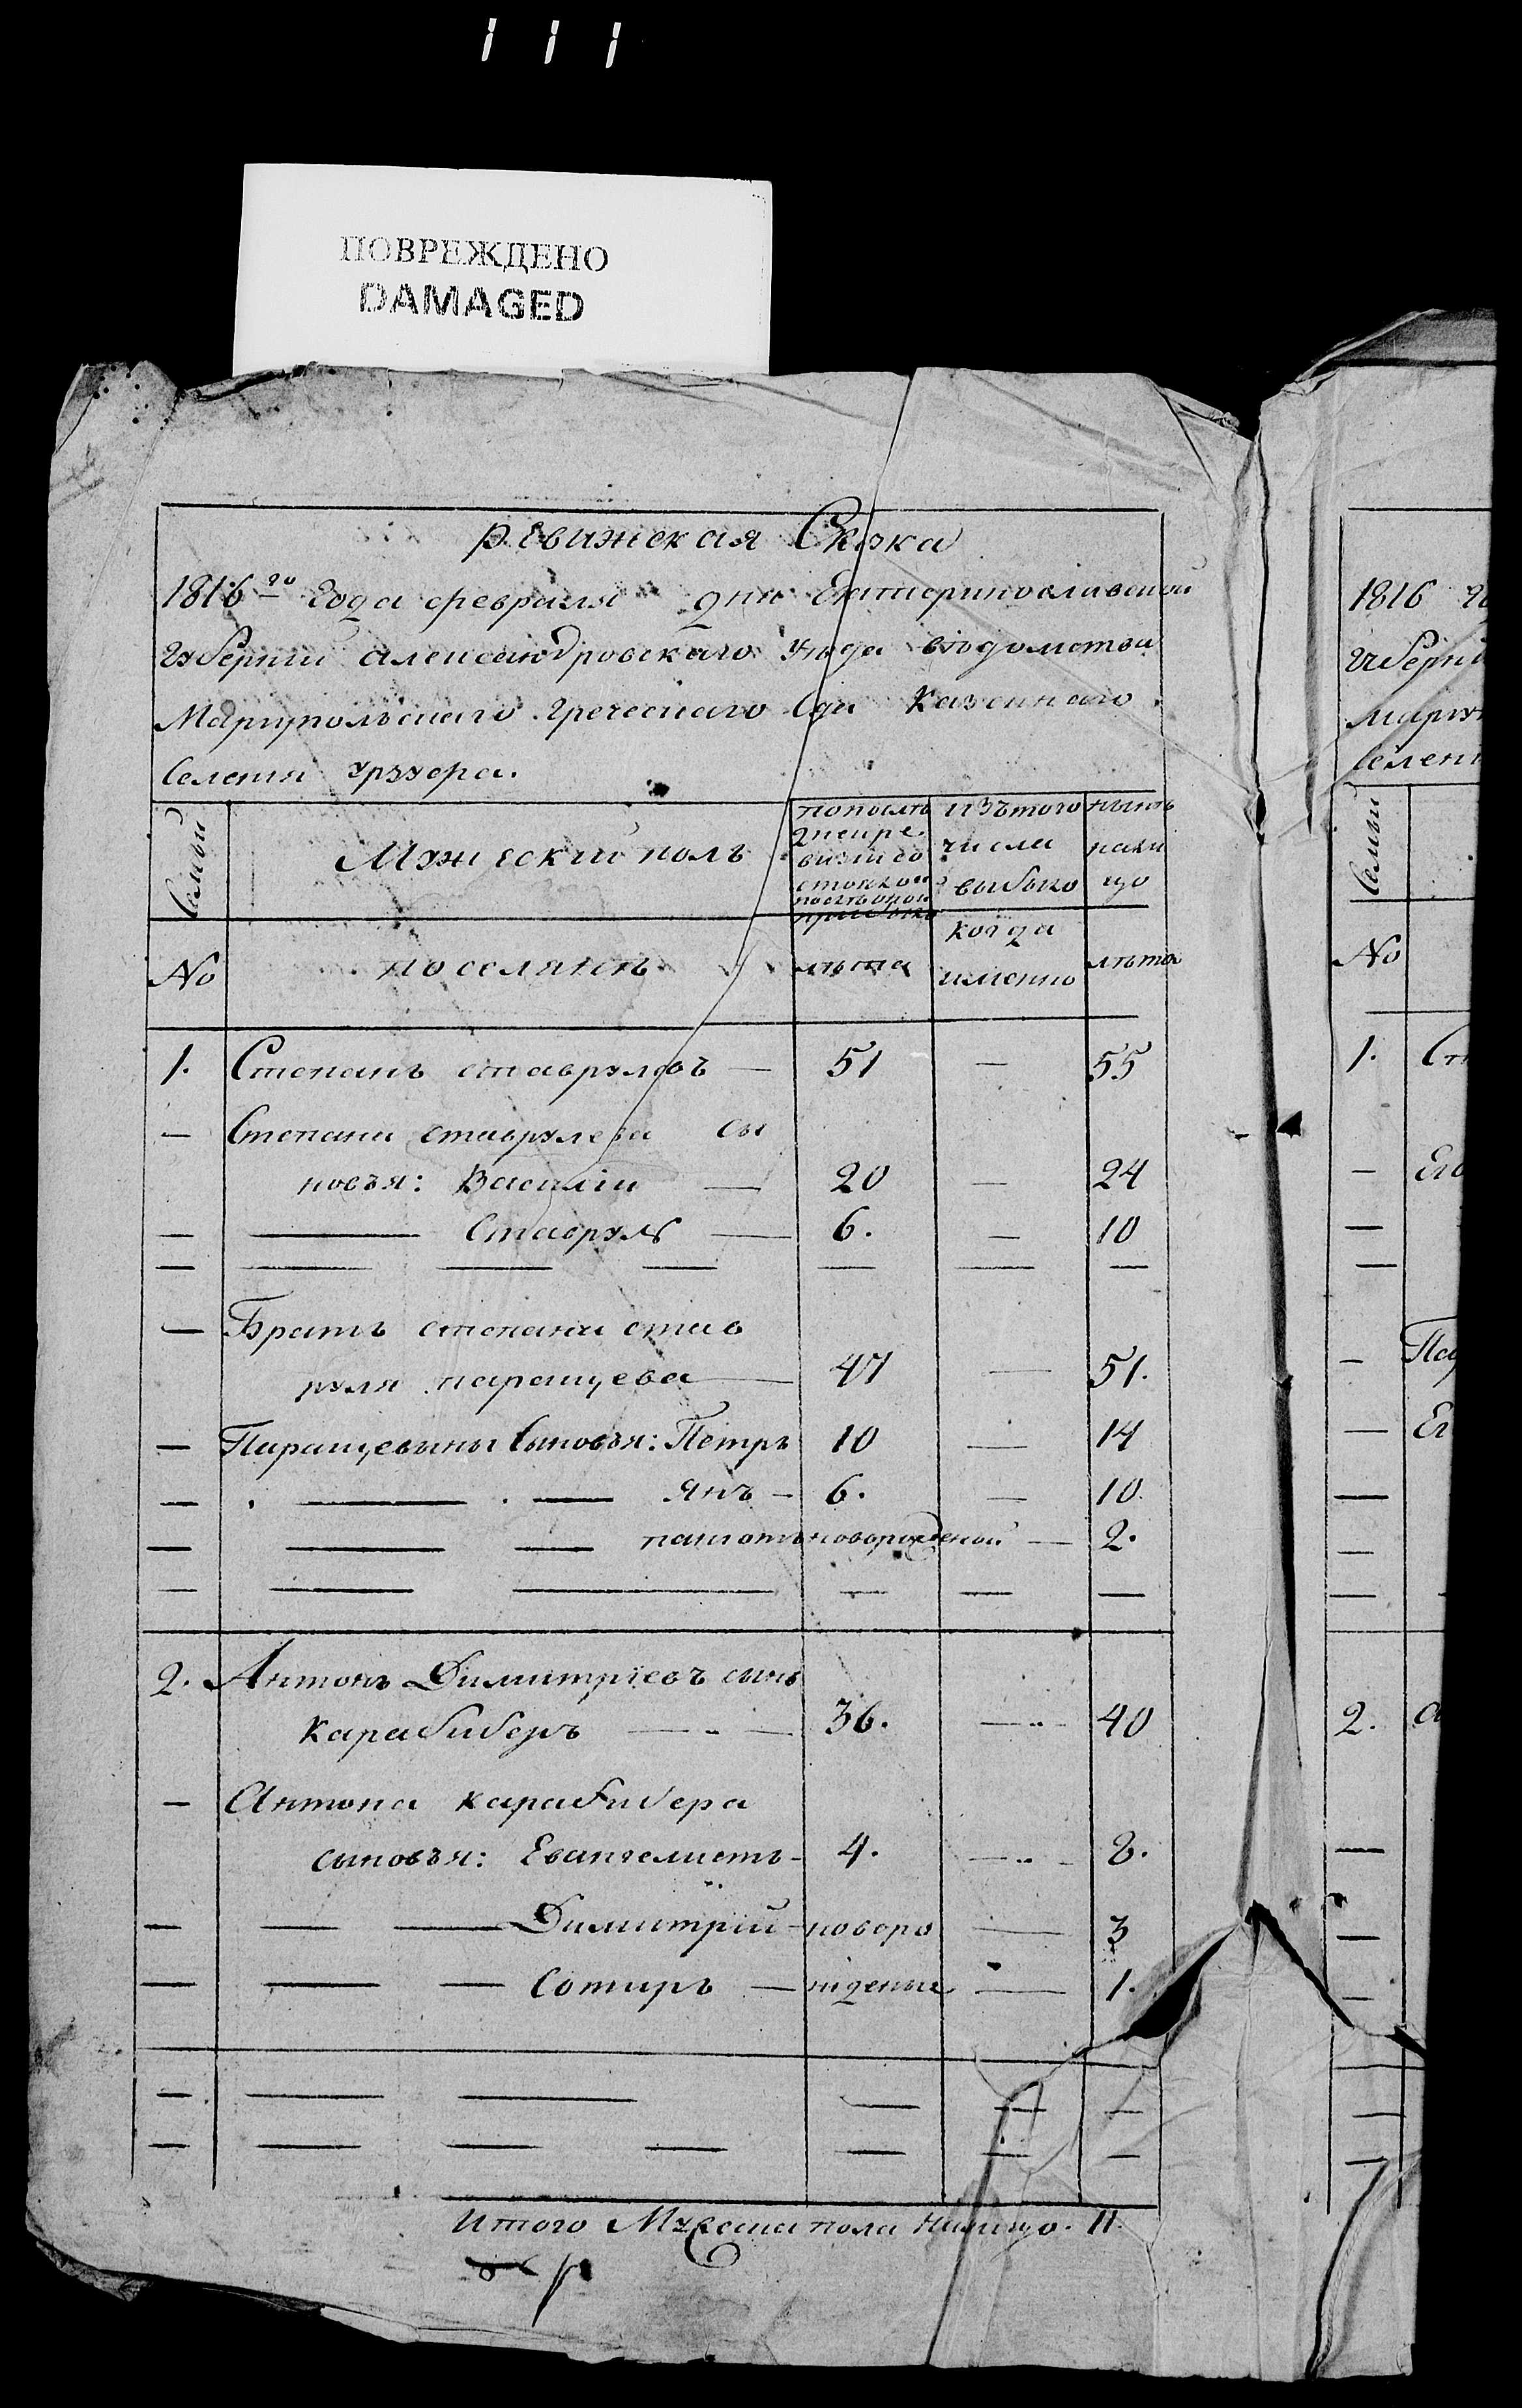 111
ПОВРЕЖДЕНО
DAMAGED
ревижская Сказка
1816го года февраля дня Екатеринославской
губернии александровского уезда ведомства
Мариупольского греческого Суда Казенного
Селения урзуфа.
Семьи
Мужеский полъ
по последней ревизии состояло и после оной прибыло
изъ того числа выбыло
ныне налицо
№
поселяне
лета
когда именно
лета
1. Степанъ ставрулевъ — 51 — 55
— Степана ставрулева сы
новья: Василій — 20 — 24
— — Ставруль — 6. — 10
— Братъ степана став
руля паращева — 47 — 51.
— Паращевины Сыновья: Петръ 10 — 14
— . — . — Янъ — 6. — 10.
— — — новорожденой — 2.
2. Антонъ Димитріевъ сынъ
Карабиберъ — 36. — 40
— Антона карабибера
сыновья: Евангелистъ — 4. — 8.
— — — Димитрій — новоро — 3
— — — Сотиръ — жденые — 1.
Итого Мужеска пола налицо. 11.
1816 го
губерни
мариу
Селени
Семьи
№
1. Ст
— Его
—
— Пар
— Ег
2. а